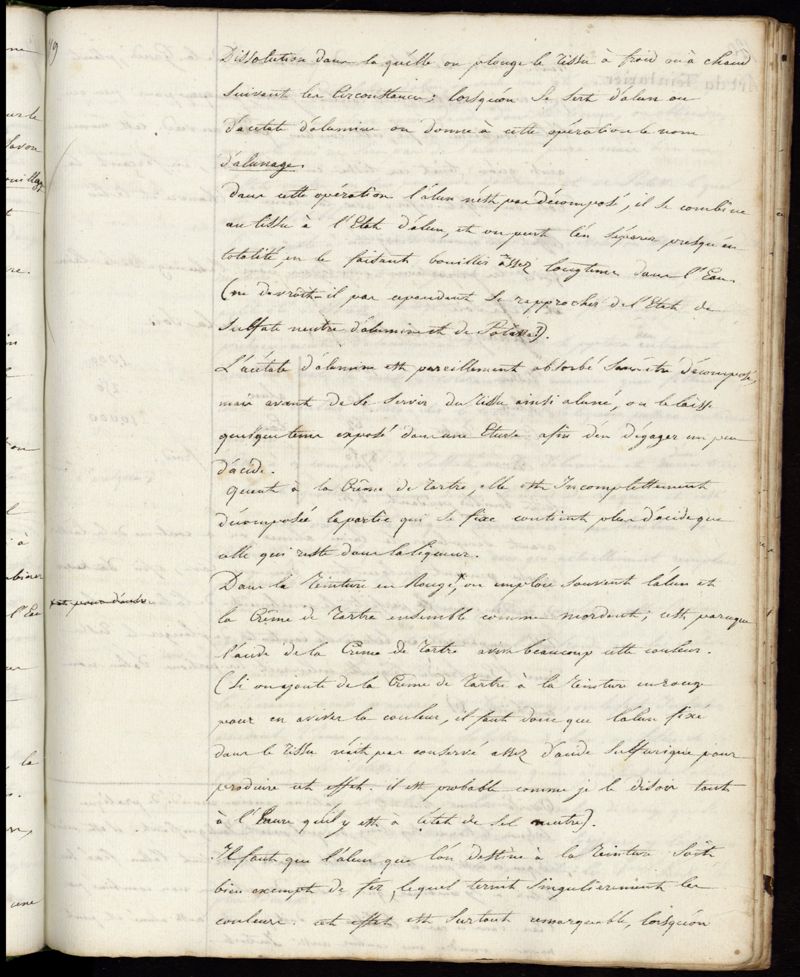 Dissolution dans laquelle on plonge le tissu à froid ou à chaud
suivant les Circonstances; lorsqu'on se sert d'alun ou
d'acétate d'alumine on donne à cette opération le nom
d'alunage.
Dans cette opération l'alun n'est pas décomposé, il se combine
au tissu à l'Etat d'alun, et on peut l'en séparer presqu'en
totalité, en le faisant bouillir assez longtems dans l'Eau.
(ne devroit-il pas cependant se rapprocher de l'Etat de
sulfate neutre d'alumine et de Potasse?).
L'acétate d'alumine est pareillement absorbé sans être décomposé,
mais avant de se servir du tissu ainsi aluné, on le laisse
quelque tems exposé dans une Etuve afin d'en dégager un peu
d'acide.
quant à la Crême de Tartre, elle est Incomplettement
décomposée la partie qui se fixe contient plus d'acide que
celle qui reste dans la liqueur.
Dans la Teinture en Rouge, on emploie souvent l'alun et
la Crême de Tartre ensemble comme mordant; c'est parceque
l'acide de la Crême de Tartre avive beaucoup cette couleur.
(Si on ajoute de la Crême de Tartre à la Teinture en rouge
pour en aviver la couleur, il faut donc que l'alun fixé
dans le tissu n'ait pas conservé assez d'acide sulfurique pour
produire cet effet. il est probable comme je le disois tout
à l'heure qu'il y est à l'état de sel neutre).
Il faut que l'alun que l'on destine à la Teinture soit
bien exempt de fer, lequel ternit singulièrement les
couleurs. cet effet est surtout remarquable, lorsqu'on